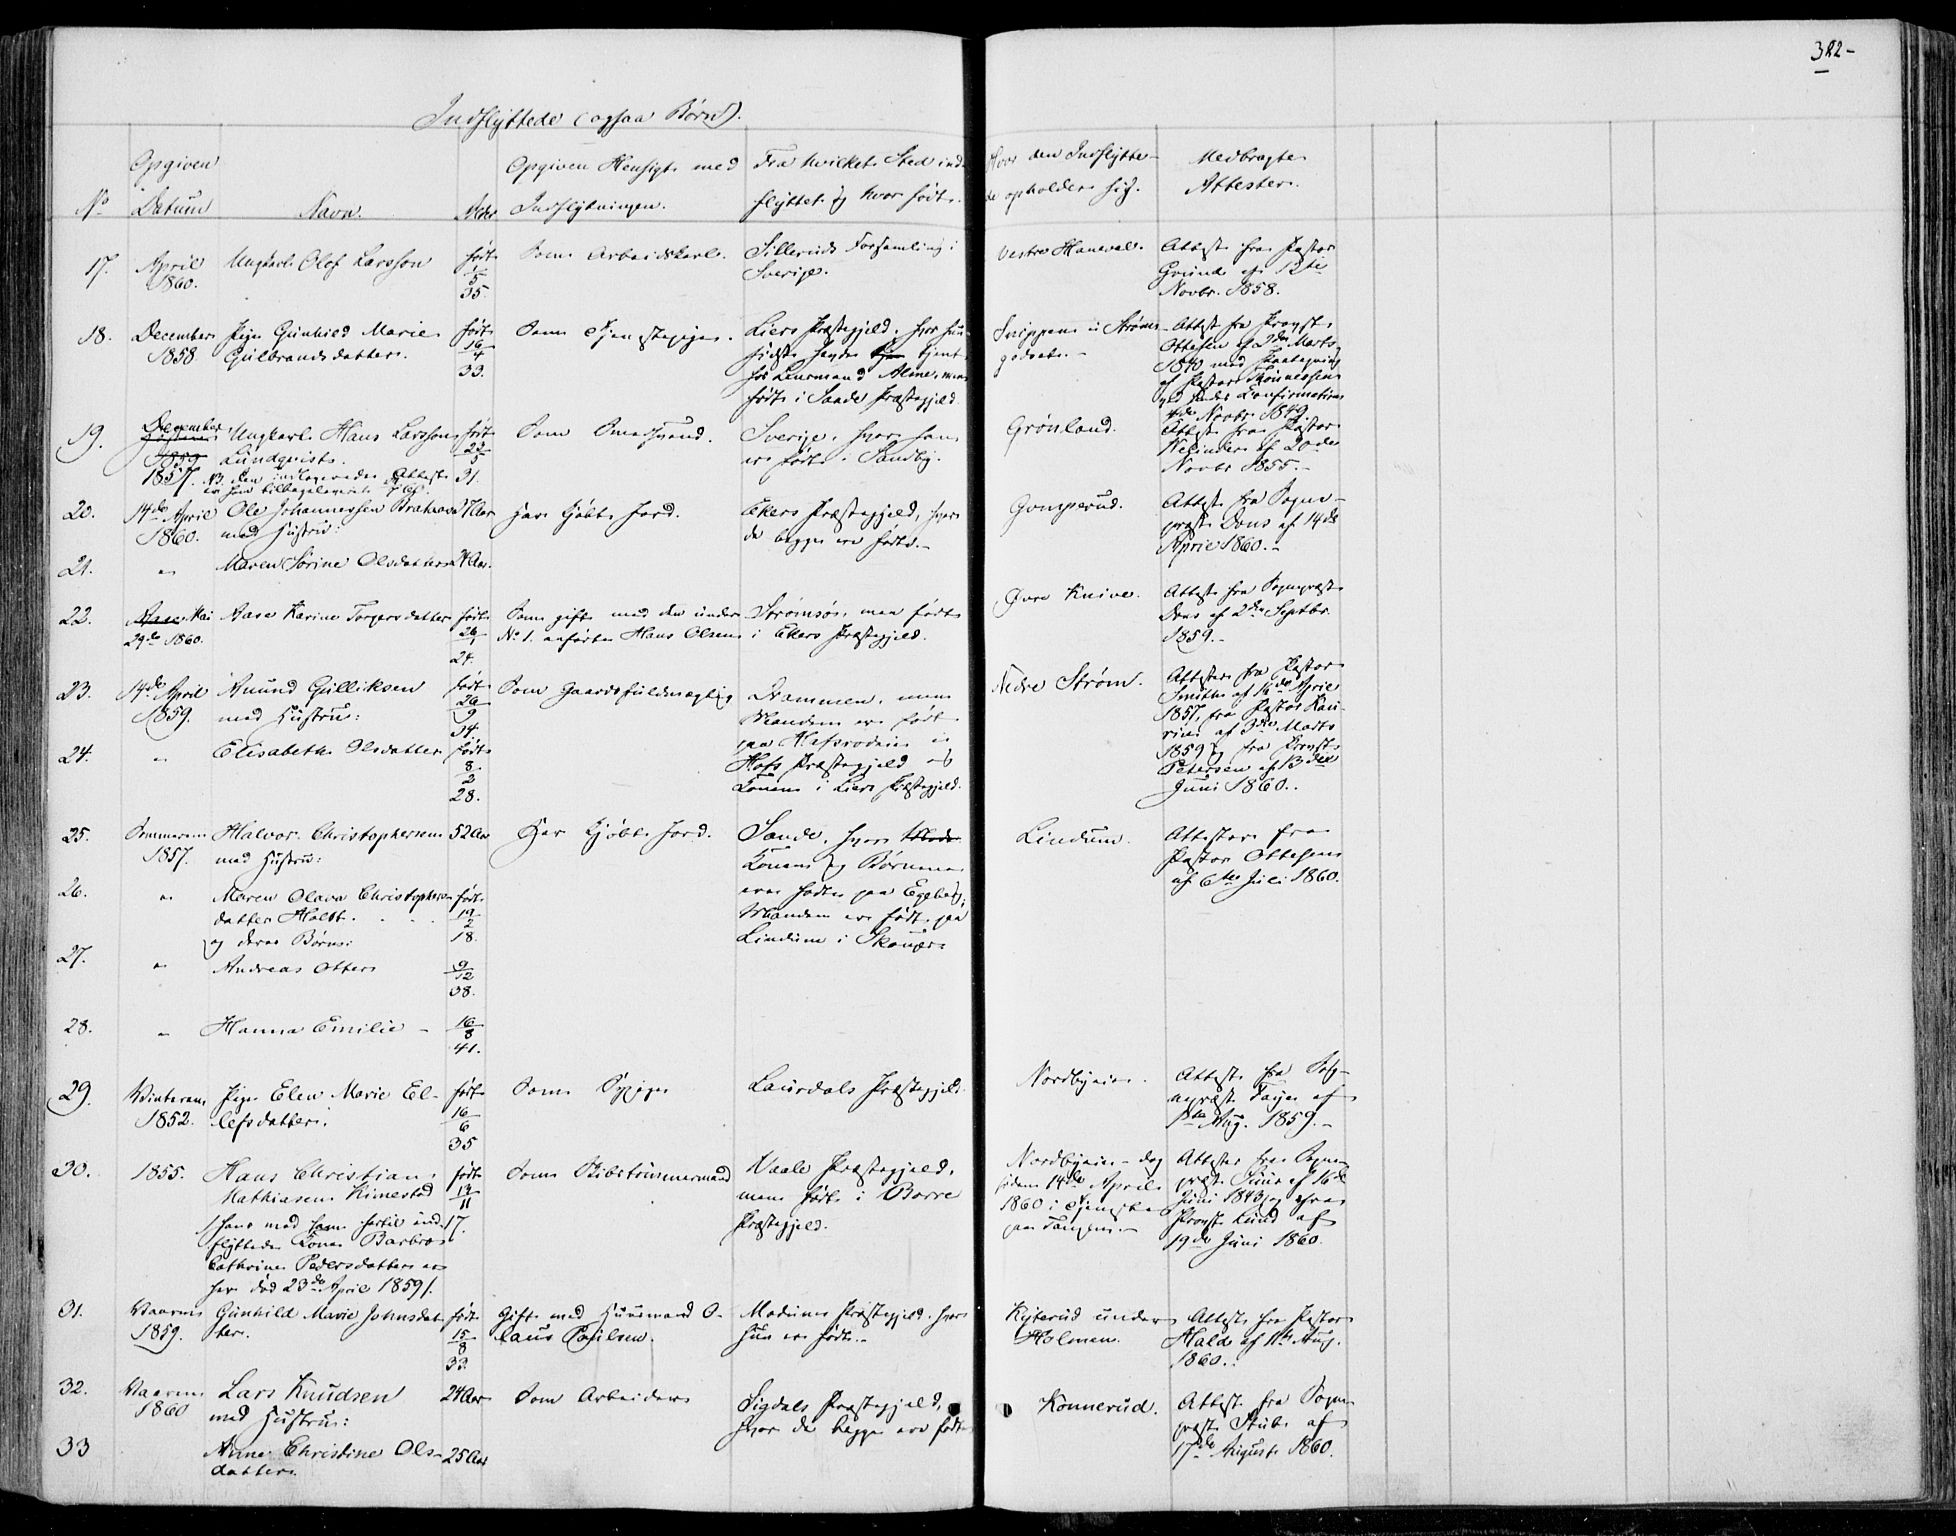 322-
Indflyttede (ogsaa Børn).
No
Opgiven
Datum
Navn.
Alder
Opgiven Hensigt med
Indflytningen.
Fra hvilket Sted ind-
flyttet og hvor født.
Hvor den Indflytte-
de opholder sig.
Medbragte
Attester.
17.
April
1860.
Ungkarl Olof Larsson
født
5
35.
Som Arbeidskarl.
Silleruds Forsamling i
Sverige.
Vestre Haneval.
Attest fra Pastor
af 12te
Novbr. 1858.
18.
December
1858.
Pige Gunhild Marie
Gulbrandsdatter.
født
16
4
33.
Som Tjenestepige.
Liers Præstegjeld, hvor hun
sidst havde tjent
hos Lensmand men
født i Sande Præstegjeld.
i Strøms-
godset.-
Attest fra Provst
Ottesen af 2den Marts
1840 med Paategning
af Pastor
om hendes Confirmation
4de Novbr 1849.
19.
December
1859
1857.
Ungkarl Hans Larsson
Lundqvist.
NB. den Attest
er ham tilbageleveret
født
23
5
31.
Som Smedsvend.
Sverige, hvor han
er født i Sandby.
Grønland.
Attest fra Pastor
af 20de
Novbr 1855.-
20.
14de April
1860.
Ole Johannessen
med Hustru:
27 Aar
Har kjøbt Jord.
Ekers Præstegjeld, hvor
de begge ere fødte.-
Gomperud.
Attest fra Sogne-
præst Dons af 14de
April 1860.-
21.
"
Maren Sørine Olsdatter
24 Aar.
22.
Mai
29de 1860.
Aase Karine Torgersdatter
født
26
1
24.
Som gift med den under
No 1. anførte Hans Olsen
Strømsø, men født
i Ekers Præstegjeld.
Øvre Knive.
Attest fra Sognepræst
Dons af 2den Septbr.
1859.-
23.
14de April
1859.
Anund Gulliksen
med Hustru:
født
26
9
34.
Som Gaardsfuldmægtig
Drammen, men
Manden er født
paa i
Hofs Præstegjeld og
Konen i Liers Præstegjeld.
Nedre Strøm.
Attester fra Pastor
Smith af 16de April
1857, fra Pastor Kau-
rin af 3die Marts
1859 og fra Provst
Petersen af 13de
Juni 1860.
24.
"
Elisabeth Olsdatter
født
8
2
28.
25.
Sommeren
1857.
Halvor Christophersen
med Hustru:
52 Aar
Har kjøbt Jord.
Sande, hvor
Konen og Børnene
ere fødte paa Egeberg;
Manden er født paa
Lindum i Skouger
Lindum.
Attester fra
Pastor Ottesen
af 6te Juli 1860.
26.
"
Maren Olava Christophers-
datter Holt
og deres Børn:
født
19
2
18.
27.
"
Andreas Otter
9
12
38.
28.
"
Hanna Emilie -
16
8
41.
29.
Vinteren
1852.
Pige Elen Marie El-
lefsdatter.
født
16
6
35
Som Sypige
Laurdals Præstegjeld.
Nordbyeie.
Attest fra Sog-
nepræst Faye af
1ste Aug. 1859.-
30.
1855.
Hans Christian
Mathiasen Kimestad
hans med ham hertil ind-
flyttede Kone Barbro
Cathrine Pedersdatter er
her død 23de April 1859.
født
13
11
17.
Som Skibstømmermand
Vaale Præstegjeld,
men født i Borre
Præstegjeld.
Nordbyeie - dog
siden 14de April
1860 i Tjeneste
paa Tangen.-
Attester fra Sogne-
præst af 16de
Juni 1843 og fra
Provst Lund af
19de Juni 1860.
31.
Vaaren
1859.
Gunhild Marie Johnsdat-
ter.
født
15
8
33.
Gift med Huusmand O-
laus Poulsen.
Modums Præstegjeld, hvor
hun er født.-
under
Holmen.
Attest fra Pastor
Hald af 11te Aug.
1860.
32.
Vaaren
1860
Lars Knudsen
med Hustru:
24 Aar
Som Arbeider
Sigdals Præstegjeld,
hvor de begge ere født
Konnerud.
Attest fra Sogne-
præst Stub af
17de August 1860.
33
Anne Christine Ols-
datter.
25 Aar